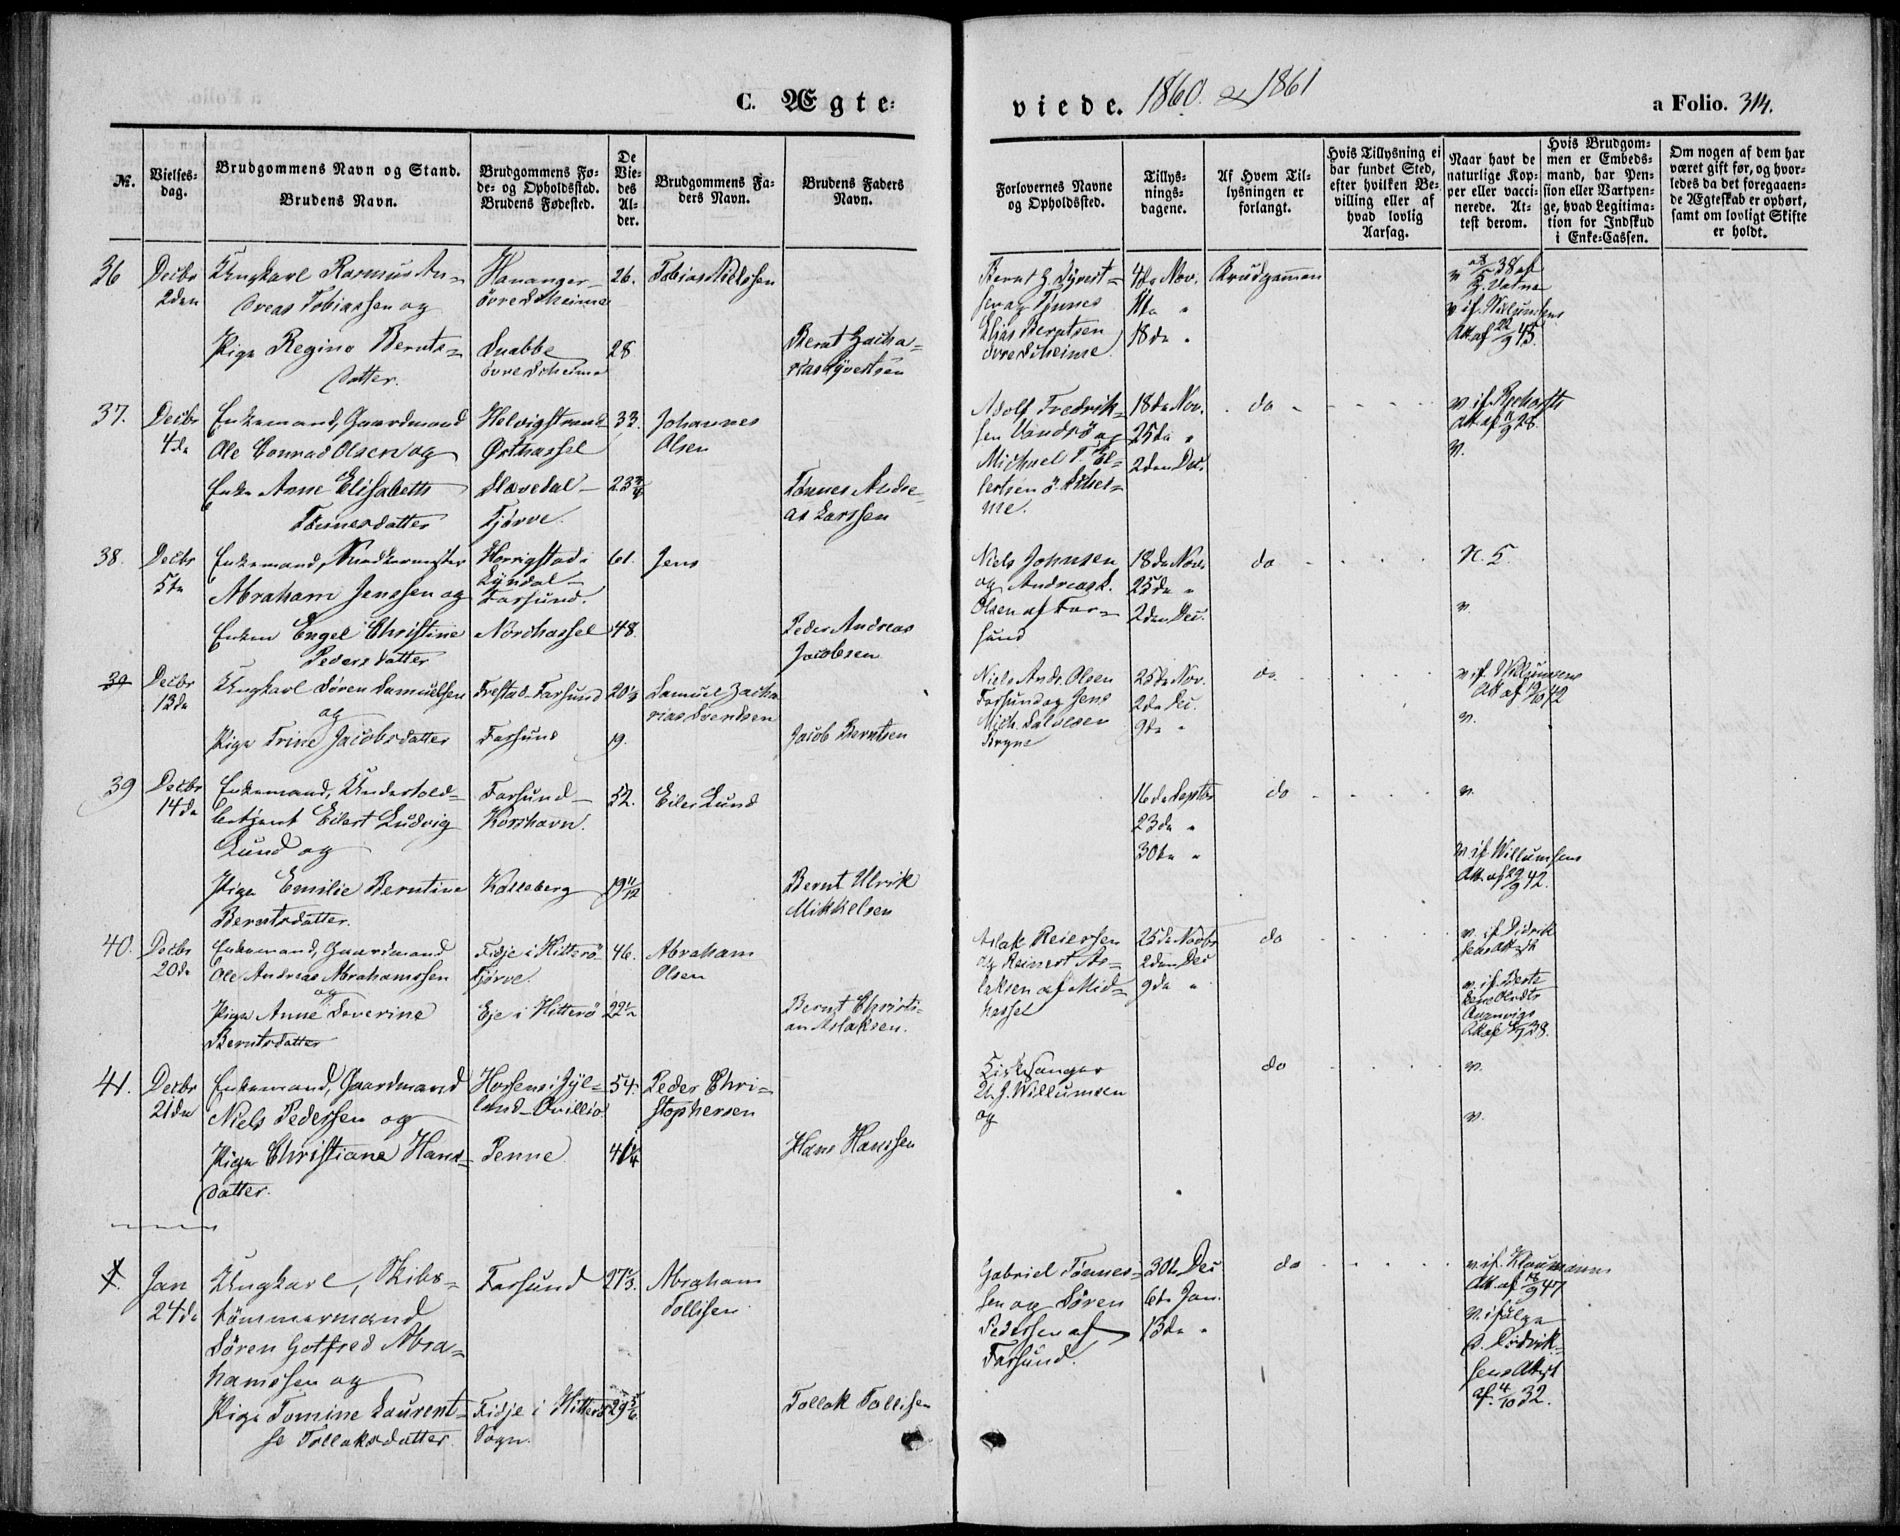 C. Ægte-
viede. 1860. og 1861
a Folio. 314.
No.
Vielses-
dag.
Brudgommens Navn og Stand.
Brudens Navn.
Brudgommens Fø-
de- og Opholdssted.
Brudens Fødested.
De
Vie-
des
Al-
der.
Brudgommens Fa-
ders Navn.
Brudens Faders
Navn.
Forlovernes Navne
og Opholdssted.
Tillys-
nings-
dagene.
Af Hvem Til-
lysningen er
forlangt.
Hvis Tillysning ei
har fundet Sted,
efter hvilken Be-
villing eller af
hvad lovlig
Aarsag.
Naar havt de
naturlige Kop-
per eller vacci-
nerede. At-
test derom.
Hvis Brudgom-
men er Embeds-
mand, har Pen-
sion eller Vartpen-
ge, hvad Legitima-
tion for Indskud
i Enke-Cassen.
Om nogen af dem har
været gift før, og hvor-
ledes da det foregaaen-
de Ægteskab er ophørt,
samt om lovligt Skifte
er holdt.
36
Decbr
2den
Ungkarl Rasmus An-
dreas Tobiassen og
Pige Regine Bernts-
datter.
Hananger-
øvre Skeime
Snabbe
øvre Skeime
26.
28
Tobias Nielssen
Bernt Zacha-
rias Syvertsen
Bernt Z. Syvert-
sen og Tjunes
Elias Berntsen
øvre Skeime.
4de Nov.
11te "
18de "
Brudgommen
v 28/5 38 af
Z. Vatne
v if. Willumsens
Att. af 22/9 45.
37.
Decbr
4de
Enkemand, Gaardmand
Ole Conrad Olsen og
Enke Anne Elisabeth
Tønnesdatter
Helvigstrand
Østhassel
Slevedal-
Tjørve.
33.
23 3/4
Johannes
Olsen
Tønnes Andre-
as Larssen
Adolf Fredrik-
sen Vandsø og
Michael T. El-
lertsen ø. Skei-
me.
18de Nov.
25de "
2den Dec.
do
v if.
Att. af 11/9 28.
v.
38.
Decbr
5te
Enkemand, Snedkermester
Abraham Jenssen og
Enken Engel Christine
Pedersdatter
Herrigstad i
Lyndal-
Farsund.
Nordhassel
61.
48.
Jens
Peder Andreas
Jacobsen
Niels Johnsen
og Andreas L.
Olsen af Far-
sund
18de Nov.
25de "
2den Dec.
do
N. 5.
v.
39
Decbr
13de
Ungkarl Søren Samuelsen
og
Pige Trine Jacobsdatter
Frestad-Farsund
Farsund
20 1/4
19.
Samuel Zacha-
rias Svendsen
Jacob Berntsen
Niels Andr. Olsen
Farsund og Jens
Mich. Salvesen
Bryne
25de Nov.
2de Dec.
9de "
do
v if. Willumsens
Att. af
v.
39
Decbr
14de
Enkemand, Undertold-
betjent Eilert Ludvig
Lund og
Pige Emilie Berntine
Berntsdatter
Farsund-
Korshavn.
Kalleberg
52.
19 11/12
Eiler Lund
Bernt Ulrik
Mikkelsen
16de Septbr
23de "
30te "
do
v.
v if. Willumsens
Att. af 29/9 42.
40.
Decbr
20de
Enkemand, Gaardmand
Ole Andreas Abrahamssen
og
Pige Anne Severine
Berntsdatter
Fidje i Hitterø-
Tjørve.
Eje i Hitterø
46.
22 1/2
Abraham
Olsen
Bernt Christi-
an Aslaksen.
Aslak Reiersen
og Reinert As-
laksen af Mid-
hassel
25de Novbr
2den Dec
9de "
do
v. if. Didrik
sens Attest
v. if. Berte
41.
Decbr
21de
Enkemand, Gaardmand
Niels Pedersen og
Pige Christiane Hans-
datter.
Horsens i Jyl-
land-Qvillio
Penne
54.
41 1/4
Peder Chri-
stophersen
Hans Hanssen
Kirkesanger
Willumsen
og
do
v.
v.
1.
Jan
24de
Ungkarl, Skibs-
tømmermand
Søren Gotfred Abra-
hamssen og
Pige Tomine Laurent-
se Tollaksdatter
Farsund
Fidje i Hitterø
Sogn.
27 1/3.
29 5/6
Abraham
Tollisen
Tollak Tollisen
Gabriel Tønnes-
sen og Søren
Pedersen af
Farsund.
30te Dec
6te Jan.
13de "
do
v. if. Klaumanns
Att. af 18/9 47
v. ifølge
D. Didrik-
sens Attest
af 4/10 32.